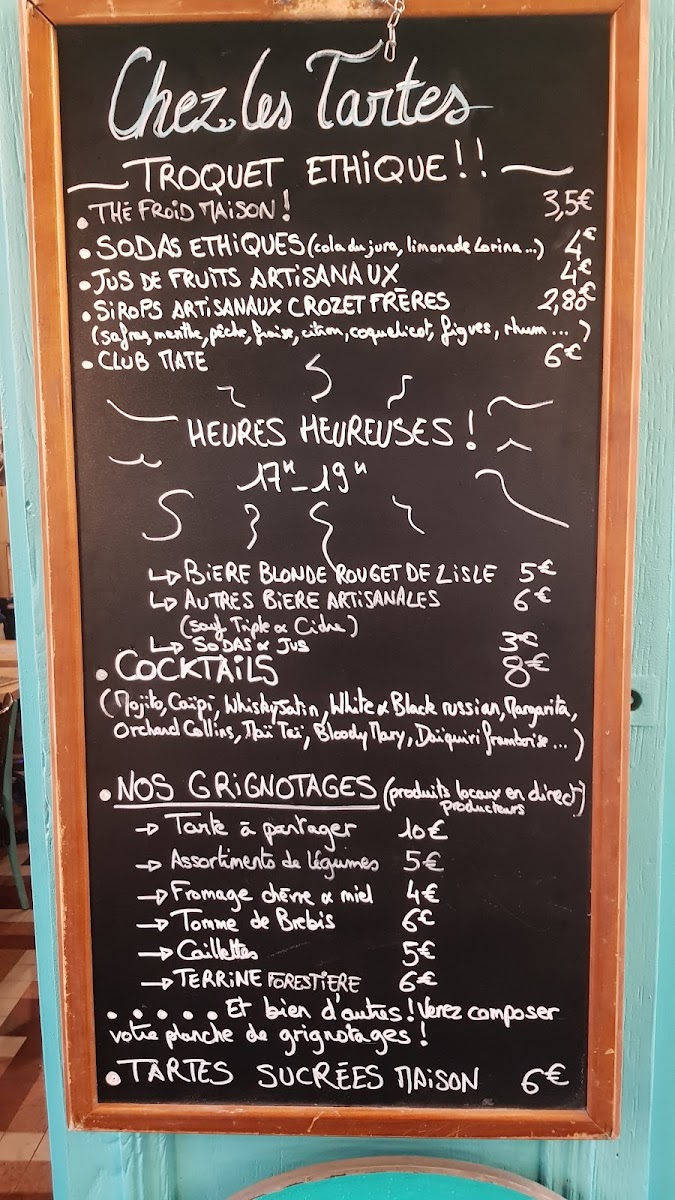 Chez Les Tartes
TROQUET ETHIQUE!!
• THÉ FROID MAISON! 3,5€
• SODAS ETHIQUES (cola du jura, limonade Lorina...) 4€
• JUS DE FRUITS ARTISANAUX 4€
• SIROPS ARTISANAUX CROZET FRÈRES 2,80€
(safran, menthe, pêche, fraise, citron, coquelicot, figues, rhum ... )
• CLUB MATE 6€
HEURES HEUREUSES !
17H-19H
BIERE BLONDE ROUGET DE LISLE 5€
AUTRES BIERE ARTISANALES 6€
(sauf Triple & Cidre)
SODAS & JUS 3€
• COCKTAILS 8€
(Mojito, Caïpi, Whisky Satin, White & Black russian, Margarita,
Orchard Collins, Maï Taï, Bloody Mary, Daïquiri framboise ... )
• NOS GRIGNOTAGES (produits locaux en direct)
PRODUCTEURS
→ Tarte à partager 10€
→ Assortiments de légumes 5€
→ Fromage chèvre & miel 4€
→ Tomme de Brebis 6€
→ Caillettes 5€
→ TERRINE FORESTIERE 6€
. . . . . . Et bien d'autres! Venez composer
votre planche de grignotages!
• TARTES SUCRÉES MAISON 6€